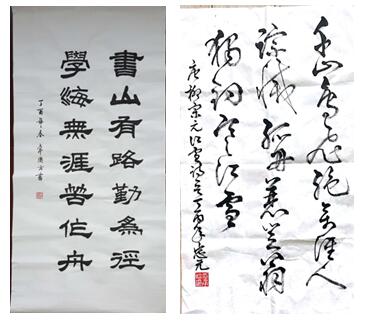 書山有路勤為徑
學海無涯苦作舟
丁酉年春
千山鳥飛絕萬徑人
踪滅孤舟蓑笠翁
獨釣寒江雪
唐柳宗元江雪詩